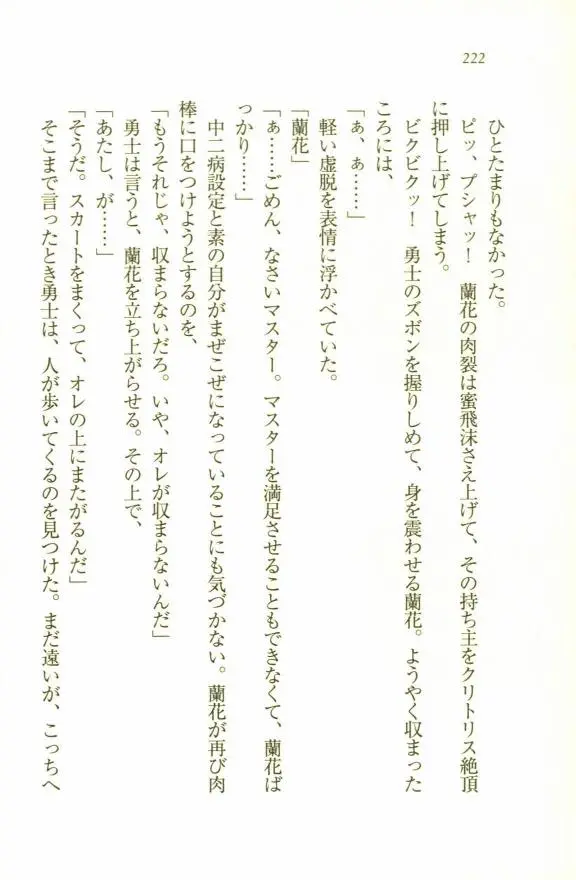 222
ひとたまりもなかった。
ピッ、プシャッ！　蘭花の肉裂は蜜飛沫さえ上げて、その持ち主をクリトリス絶頂
に押し上げてしまう。
ビクビクッ！　勇士のズボンを握りしめて、身を震わせる蘭花。ようやく収まった
ころには、
「ぁ、ぁ……」
軽い虚脱を表情に浮かべていた。
「蘭花」
「ぁ……ごめん、なさいマスター。マスターを満足させることもできなくて、蘭花ば
っかり……」
中二病設定と素の自分がまぜこぜになっていることにも気づかない。蘭花が再び肉
棒に口をつけようとするのを、
「もうそれじゃ、収まらないだろ。いや、オレが収まらないんだ」
勇士は言うと、蘭花を立ち上がらせる。その上で、
「あたし、が……」
「そうだ。スカートをまくって、オレの上にまたがるんだ」
そこまで言ったとき勇士は、人が歩いてくるのを見つけた。まだ遠いが、こっちへ